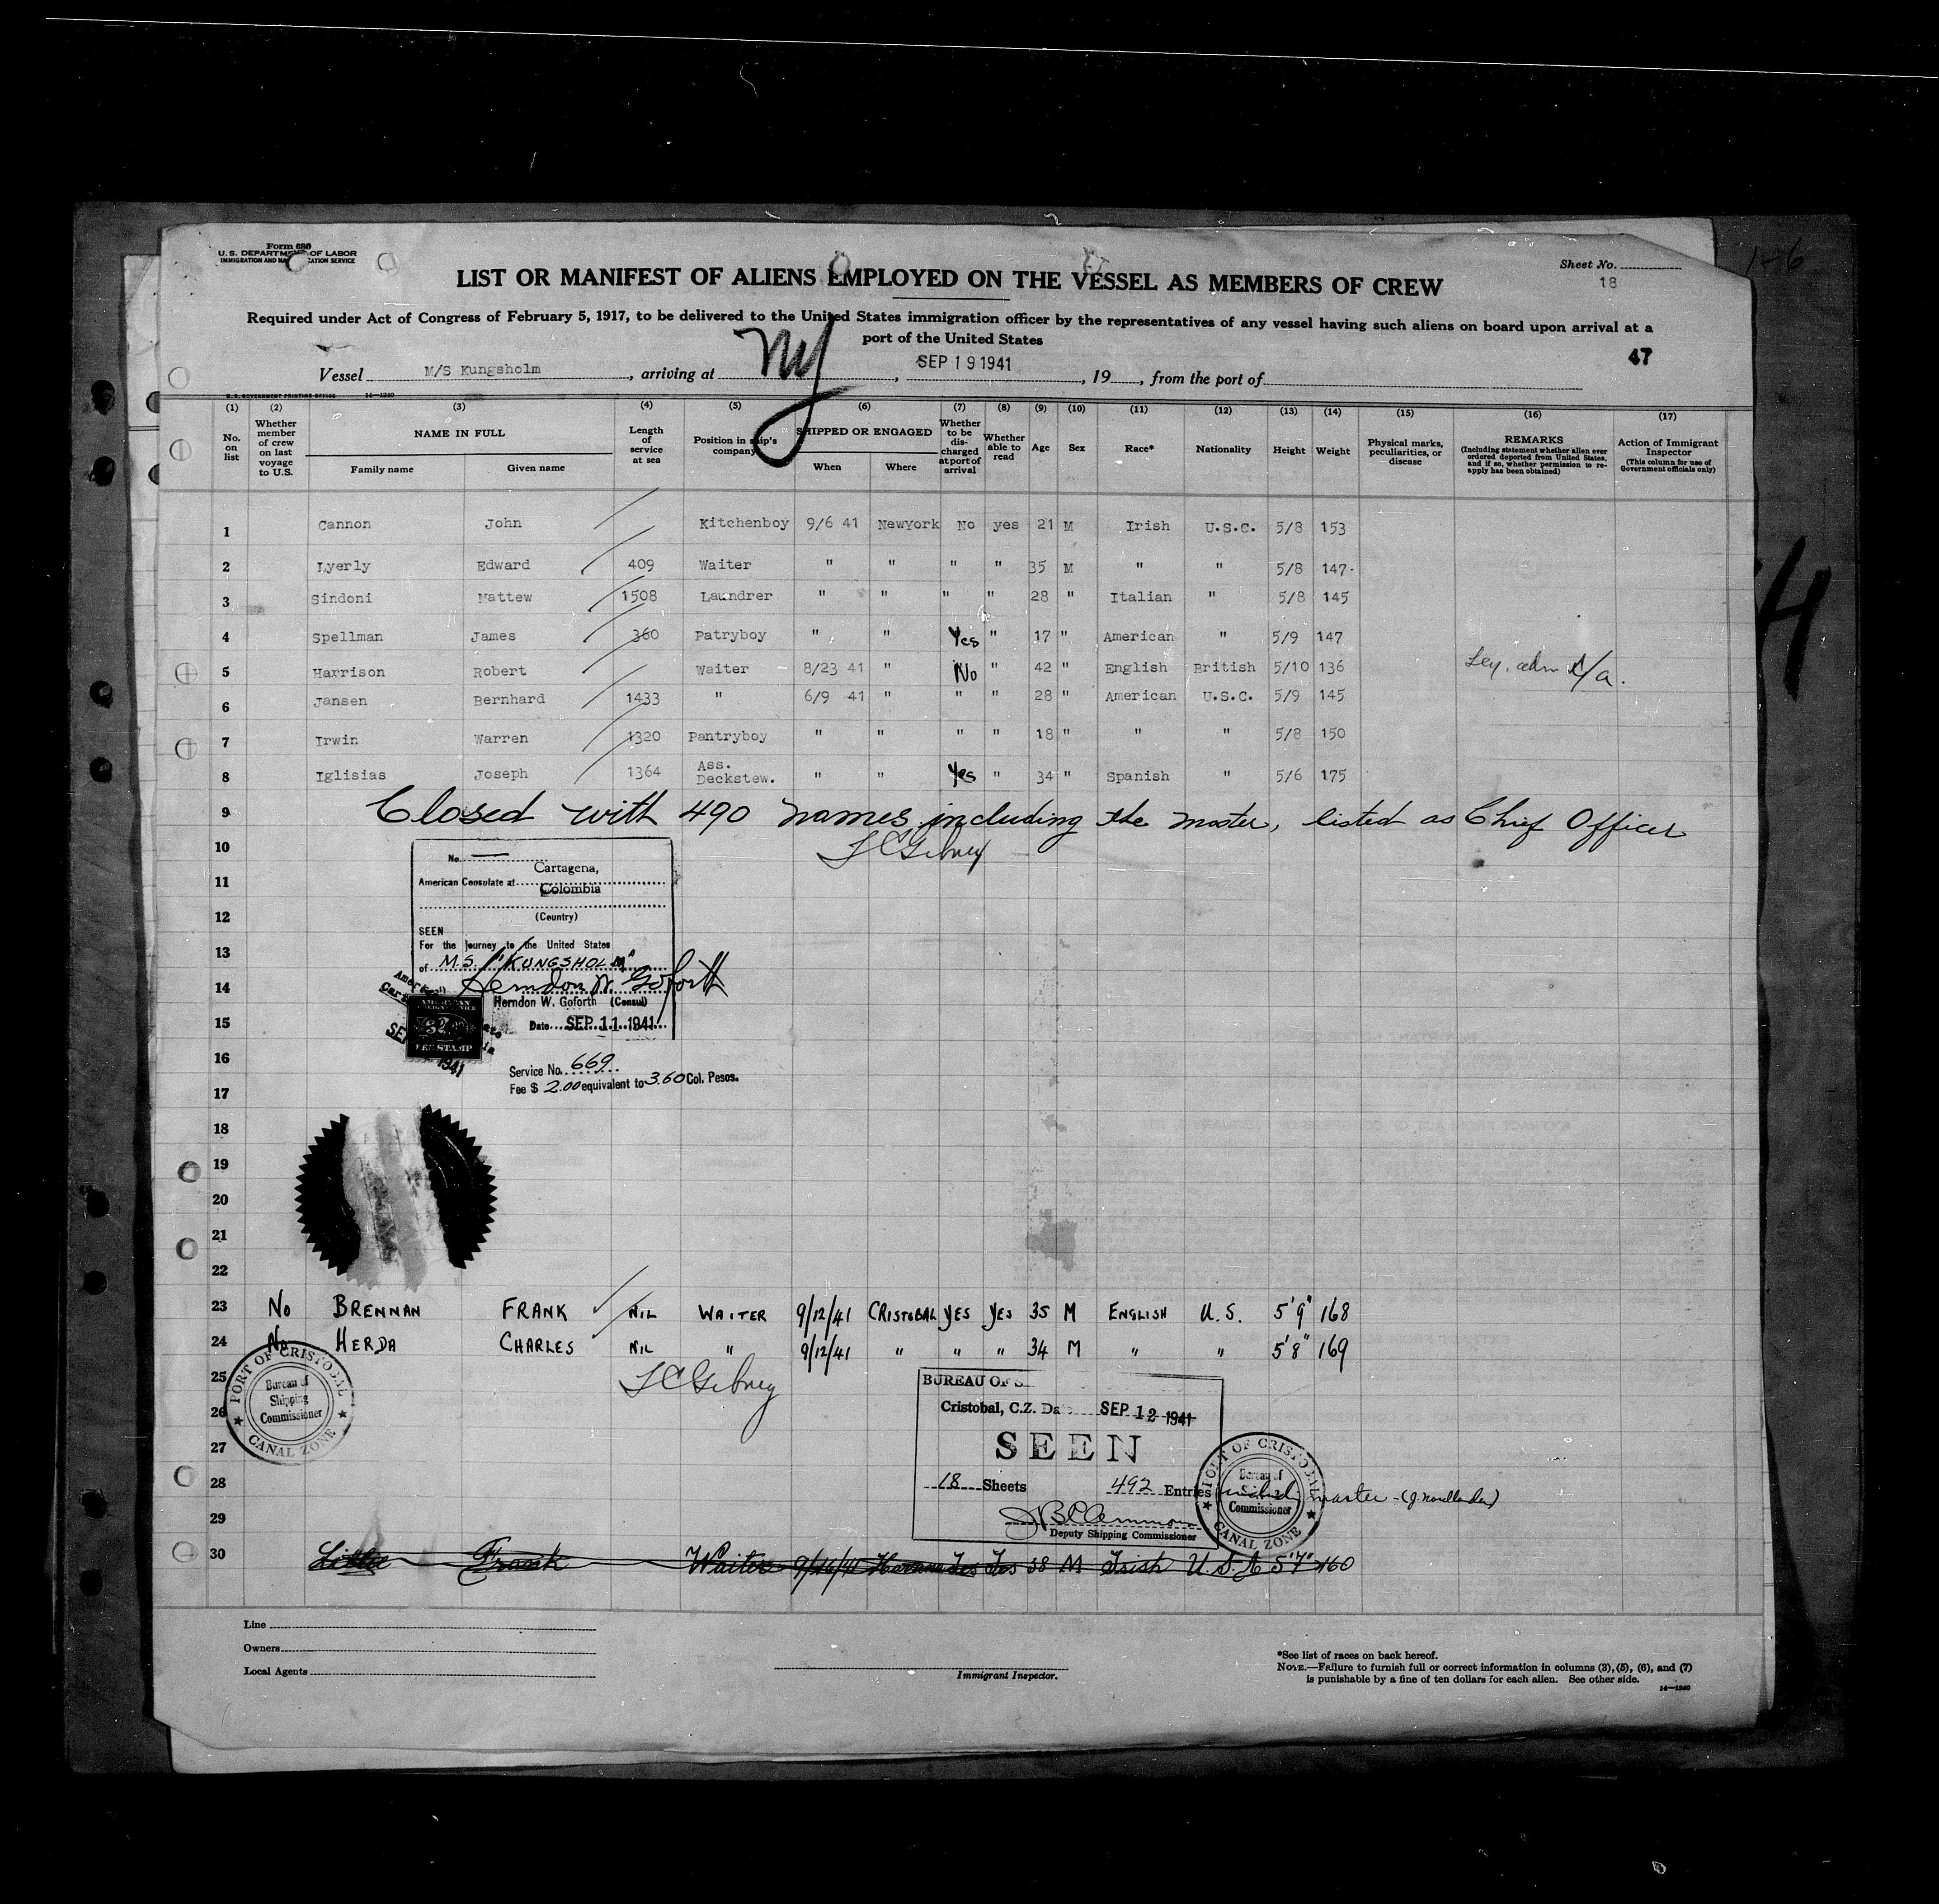 1-6
Form 680
U.S. DEPARTMENT OF LABOR
IMMIGRATION AND NATURALIZATION SERVICE
Sheet No.
18
LIST OR MANIFEST OF ALIENS EMPLOYED ON THE VESSEL AS MEMBERS OF CREW
Required under Act of Congress of February 5, 1917, to be delivered to the United States immigration officer by the representatives of any vessel having such aliens on board upon arrival at a
port of the United States
47
Vessel M/S Kungsholm, arriving at NY, SEP 19 1941, 19, from the port of
U.S. GOVERNMENT PRINTING OFFICE 14—1240
(1) (2) (3) (4) (5) (6) (7) (8) (9) (10) (11) (12) (13) (14) (15) (16) (17)
No. on list
Whether member of crew on last voyage to U.S.
NAME IN FULL
Family name Given name
Length of service at sea
Position in ship's company
SHIPPED OR ENGAGED
When Where
Whether to be discharged at port of arrival
Whether able to read
Age
Sex
Race*
Nationality
Height
Weight
Physical marks, peculiarities, or disease
REMARKS
(Including statement whether alien ever ordered deported from United States, and if so, whether permission to re-apply has been obtained)
Action of Immigrant Inspector
(This column for use of Government officials only)
1 Cannon John Kitchenboy 9/6 41 NewYork No yes 21 M Irish U.S.C. 5/8 153
2 Lyerly Edward 409 Waiter " " " " 35 M " " 5/8 147
3 Sindoni Mattew 1508 Laundrer " " " " 28 " Italian " 5/8 145
4 Spellman James 360 Patryboy " " Yes " 17 " American " 5/9 147
5 Harrison Robert Waiter 8/23 41 " No " 42 " English British 5/10 136
6 Jansen Bernhard 1433 " 6/9 41 " " " 28 " American U.S.C. 5/9 145
7 Irwin Warren 1320 Pantryboy " " " " 18 " " " 5/8 150
8 Iglisias Joseph 1364 Ass. Deckstew. " " Yes " 34 " Spanish " 5/6 175
9 Closed with 490 names including the master, listed as Chief Officer
10 L C Gibney
No.
Cartagena,
11 American Consulate at Colombia
12 (Country)
SEEN
13 For the Journey to the United States
of M.S. "KUNGSHOLM"
14 Herndon W. Goforth
Herndon W. Goforth (Consul)
AMERICAN
FEE STAMP
15 Date SEP 11 1941
16 Service No. 669
Fee $ 2.00 equivalent to 3.60 Col. Pesos.
17
18
19
20
21
22
23 No BRENNAN FRANK NIL WAITER 9/12/41 CRISTOBAL YES YES 35 M ENGLISH U.S. 5'9" 168
24 No HERDA CHARLES NIL " 9/12/41 " " " 34 M " " 5'8" 169
25 L C Gibney
PORT OF CRISTOBAL
Bureau of
Shipping
Commissioner
CANAL ZONE
BUREAU OF S
26 Cristobal, C.Z. Da SEP 12 1941
27 SEEN
28 18 Sheets 492 Entries master - (J. Nordlander)
29
Deputy Shipping Commissioner
PORT OF CRISTOBAL
Bureau of
Commissioner
CANAL ZONE
30 Frank Waiter 9/16/41 Havana Yes Yes 38 M Irish U.S.A 5'7" 160
Line
Owners
Local Agents
Immigrant Inspector.
*See list of races on back hereof.
NOTE.—Failure to furnish full or correct information in columns (3), (5), (6), and (7)
is punishable by a fine of ten dollars for each alien. See other side.
14—1240